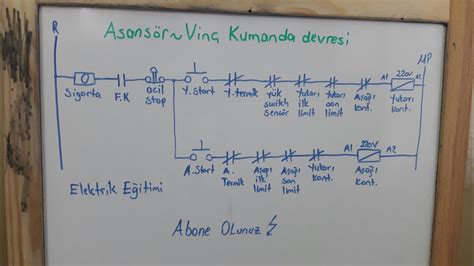 Asansör~Vinç Kumanda devresi
R
MP
Sigorta
F.K
acil stop
Y.start
Y.termik
yük switch sensör
Yukarı ilk limit
Yukarı son limit
Aşağı kont.
A1 220V A2
Yukarı kont.
A.start
A. Termik
Aşağı ilk limit
Aşağı son limit
Yukarı kont.
A1 220V A2
Aşağı kont.
Elektrik Eğitimi
Abone Olunuz